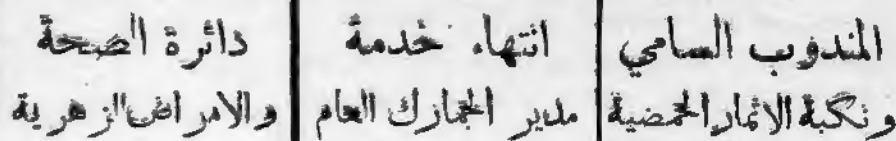 المندوب السامي
ونكبة الاثمار الحمضية
انتهاء خدمة
مدير الجمارك العام
دائرة الصحة
والامراض الزهرية